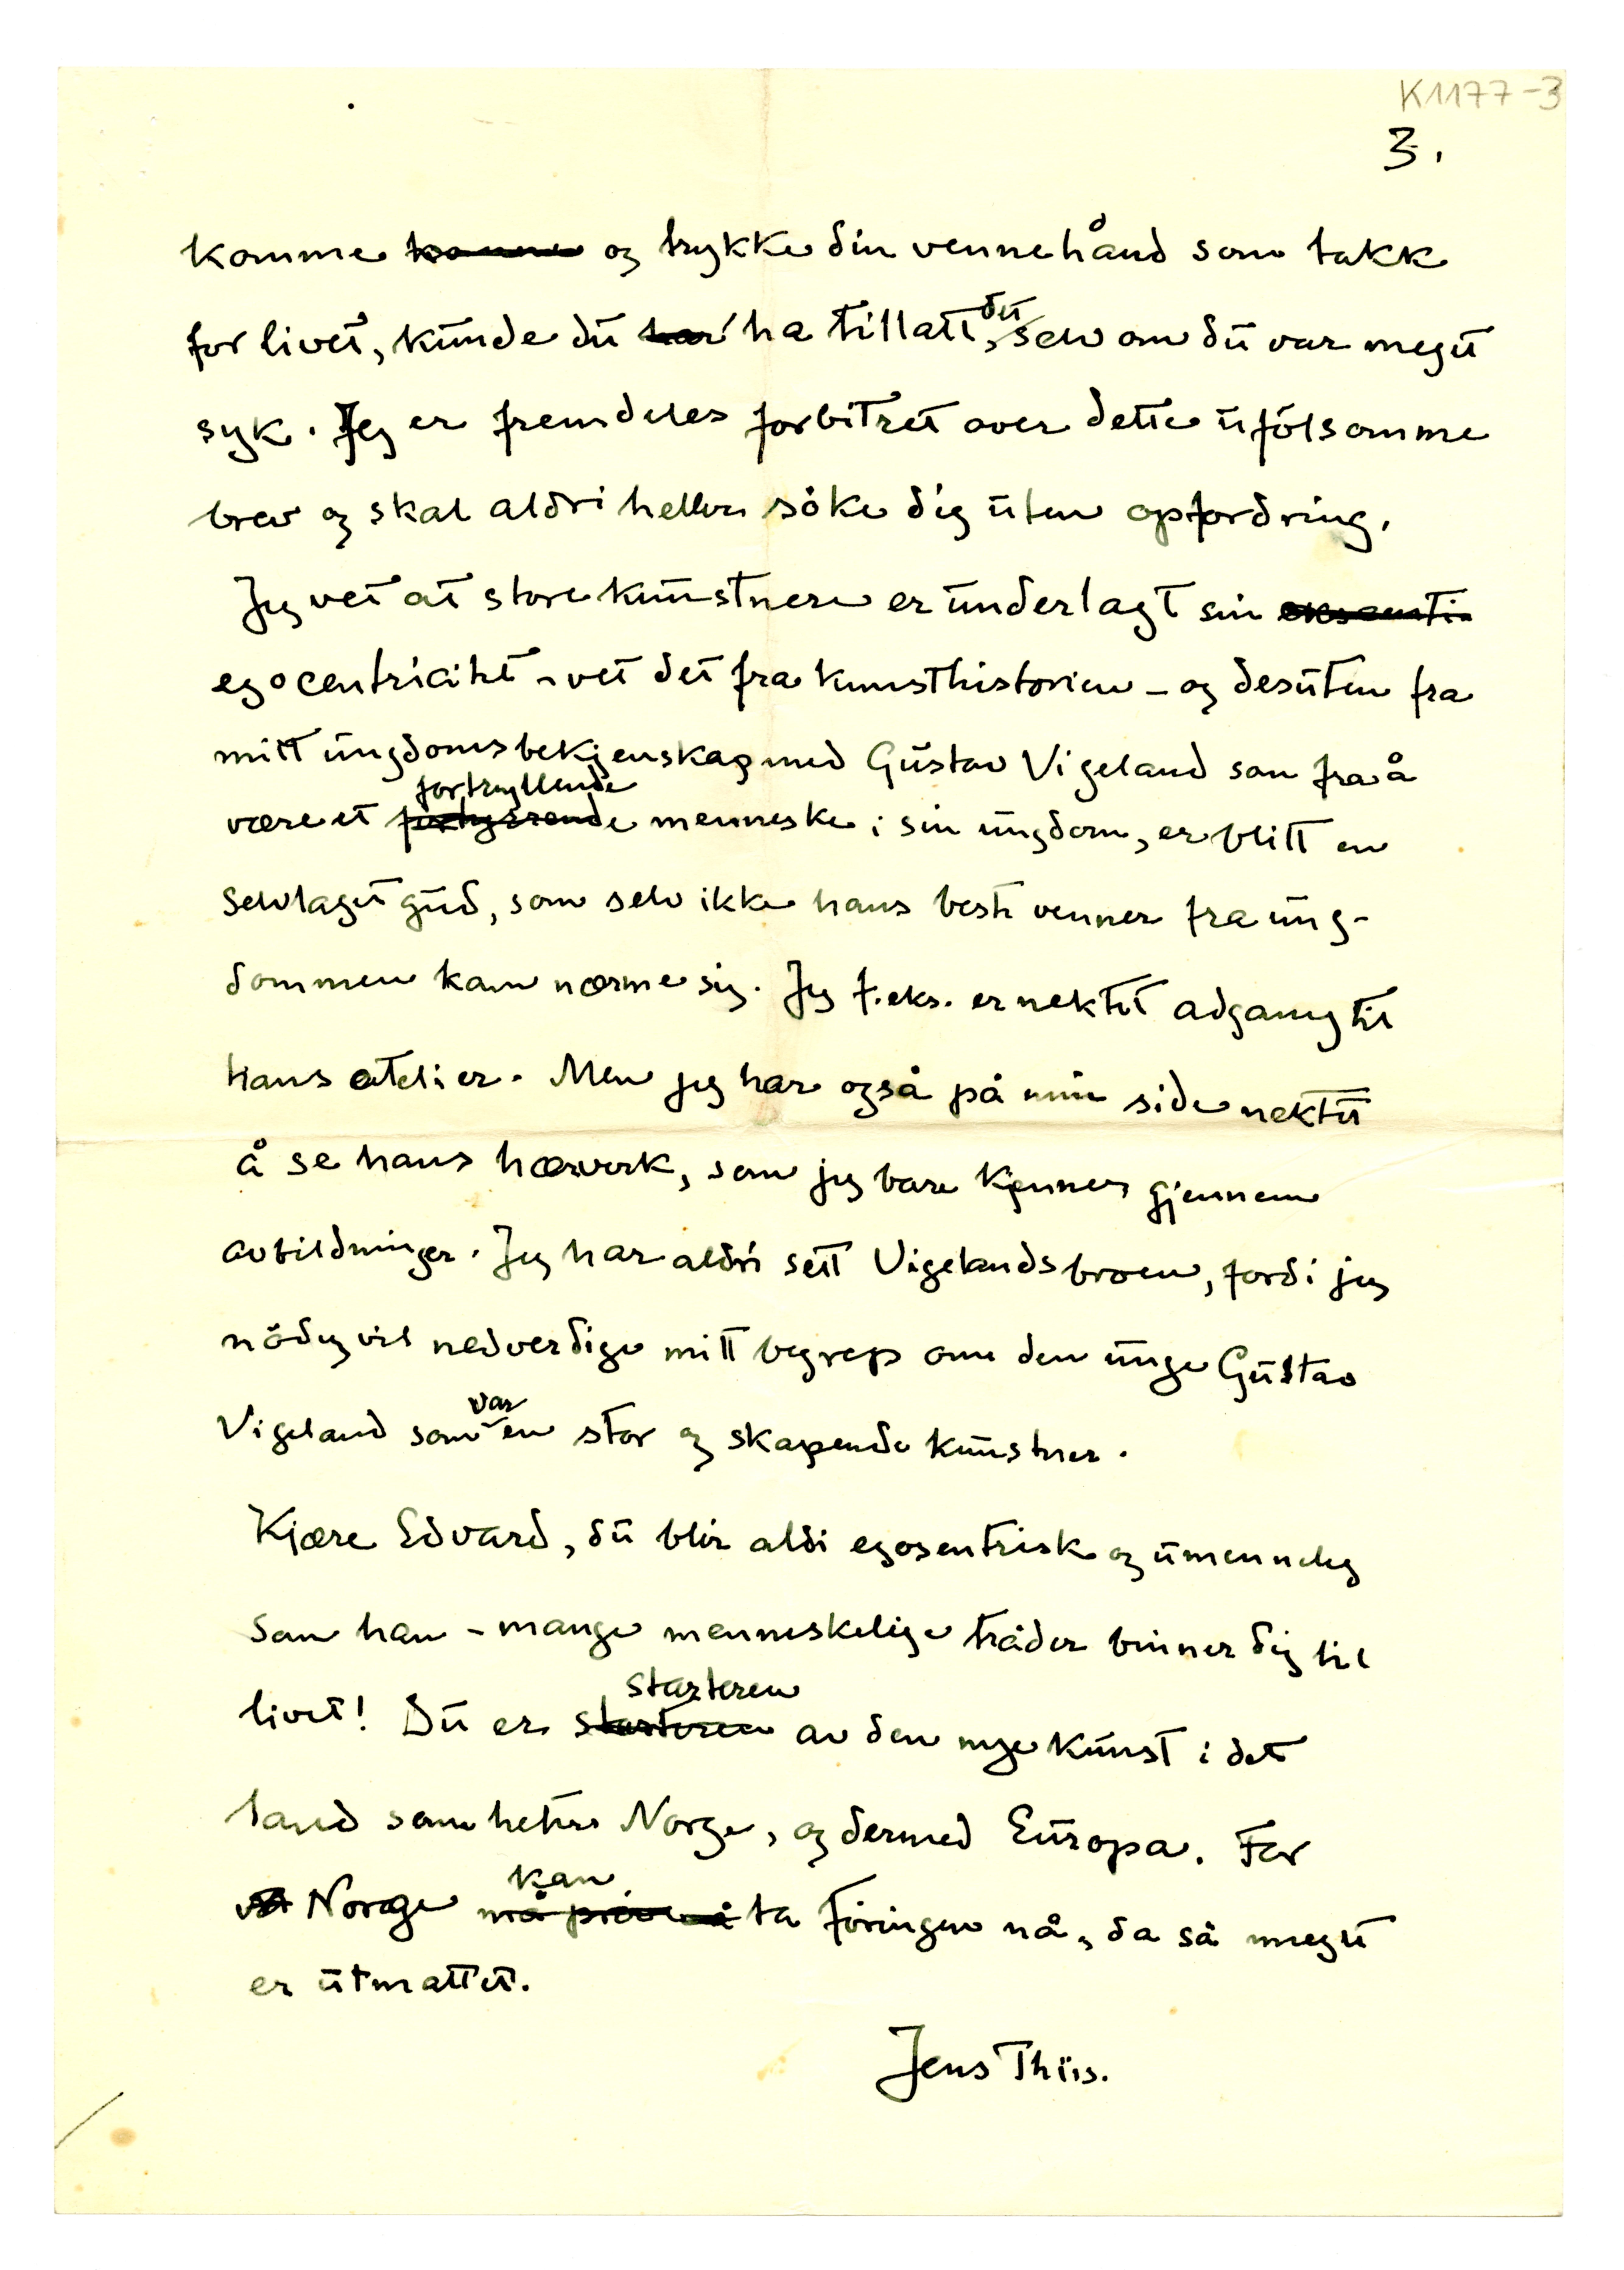 K1177-3
3.
komme komme og trykke din vennehånd som takk
for livet, kunde du har ha tillatt det, selv om du var meget
syk. Jeg er fremdeles forbitret over dette ufölsomme
brev og skal aldri heller söke dig uten opfordring.
Jeg vet at store kunstnere er underlagt sin
egocentricitet - vet det fra kunsthistorien - og desuten fra
mitt ungdomsbekjenskap med Gustav Vigeland som fra å
fortryllende
være et menneske i sin ungdom, er blitt en
selvlaget gud, som selv ikke hans beste venner fra ung-
dommen kan nærme sig. Jeg f.eks. er nektet adgang til
hans atelier. Men jeg har også på min side nektet
å se hans hærverk, som jeg bare kjenner gjennem
avbildninger. Jeg har aldri sett Vigelandsbroen, fordi jeg
nödig vil nedverdige mitt begrep om den unge Gustav
Vigeland som var en stor og skapende kunstner.
Kjære Edvard, du blir aldi egosentrisk og umenneleg
som han - mange menneskelige tråder binner dig til
starteren
livet! Du er starteren av den nye kunst i det
land som heter Norge, og dermed Europa. For
kan
vet Norge må pröve å ta föringen nå, da så meget
er utmattet.
Jens Thiis.